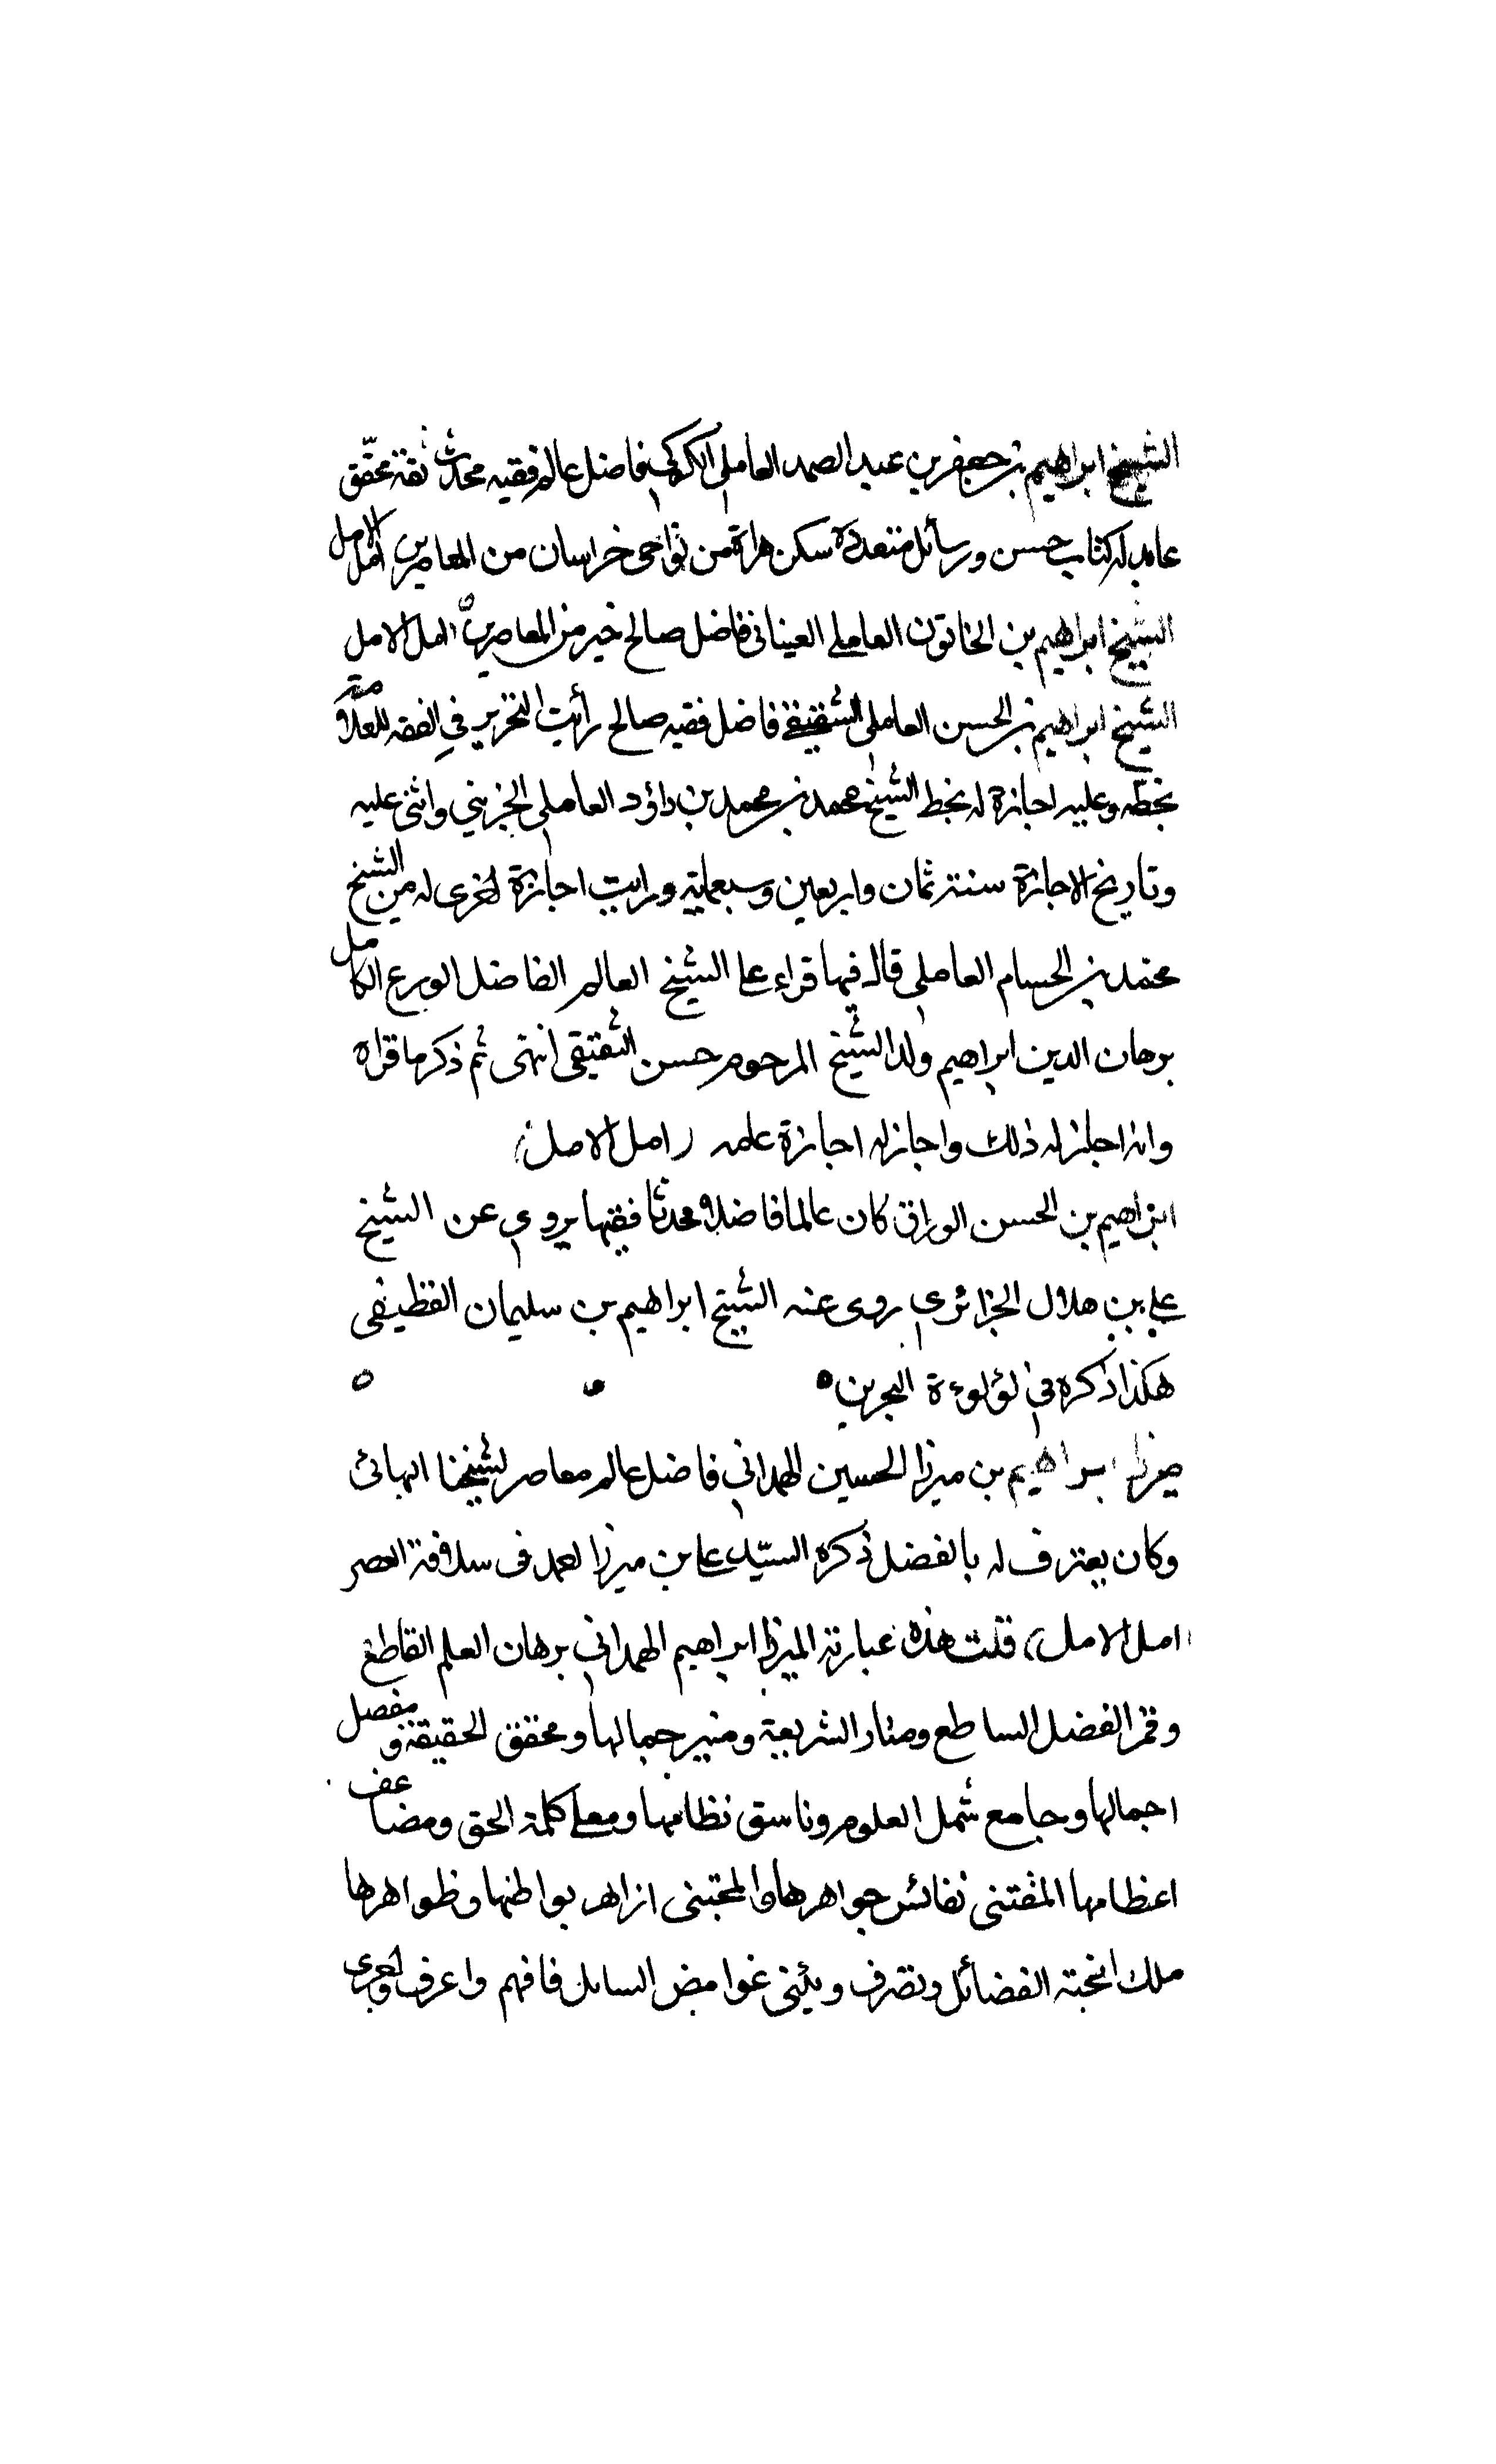 الشيخ ابراهيم بن جعفر بن عبد الصمد العاملي الكركي فاضل عالم فقيه محدث ثقة محقق
عابد له كتاب حسن ورسائل متعددة سكن هراة من نواحي خراسان من المعاصرين امل الامل
الشيخ ابراهيم بن الخاتون العاملي العيناثي فاضل صالح خير من المعاصرين امل الامل
الشيخ ابراهيم بن الحسن العاملي الشقيفي فاضل فقيه صالح رأيت التحرير في الفقه للعلامة
بخطه وعليه اجازة له بخط الشيخ محمد بن محمد بن داؤد العاملي الجزيني واثنى عليه
وتاريخ الاجازة سنة ثمان واربعين وسبعماية ورايت اجازة اخرى له من الشيخ
محمد بن الحسام العاملي قال فيها قراء علي الشيخ العالم الفاضل الورع الكامل
برهان الدين ابراهيم ولد الشيخ المرحوم حسن الشقيفي انتهى ثم ذكر ما قراه
وانه اجاز له ذلك واجاز له اجازة عامه (امل الامل)
ابراهيم بن الحسن الوراق كان عالما فاضلا محدثا فقيها يروي عن الشيخ
علي بن هلال الجزائري روى عنه الشيخ ابراهيم بن سليمان القطيفي
هكذا ذكره في لؤلوءة البحرين
ميرزا ابراهيم بن ميرزا الحسين الهمداني فاضل عالم معاصر لشيخنا البهائي
وكان يعترف له بالفضل ذكره السيّد علي بن ميرزا احمد في سلافة العصر
(امل الامل) قلت هذه عبارته الميرزا ابراهيم الهمداني برهان العلم القاطع
وقمر الفضل الساطع ومنار الشريعة ومنير جمالها ومحقق الحقيقة ومفصل
اجمالها وجامع شمل العلوم وناسق نظامها ومعلي كلمة الحق ومضاعف
اعظامها المقتني نفائس جواهرها والمجتني ازاهر بواطنها وظواهرها
ملك اعنة الفضائل وتصرف وبين غوامض المسائل فافهم واعرف ولعمري